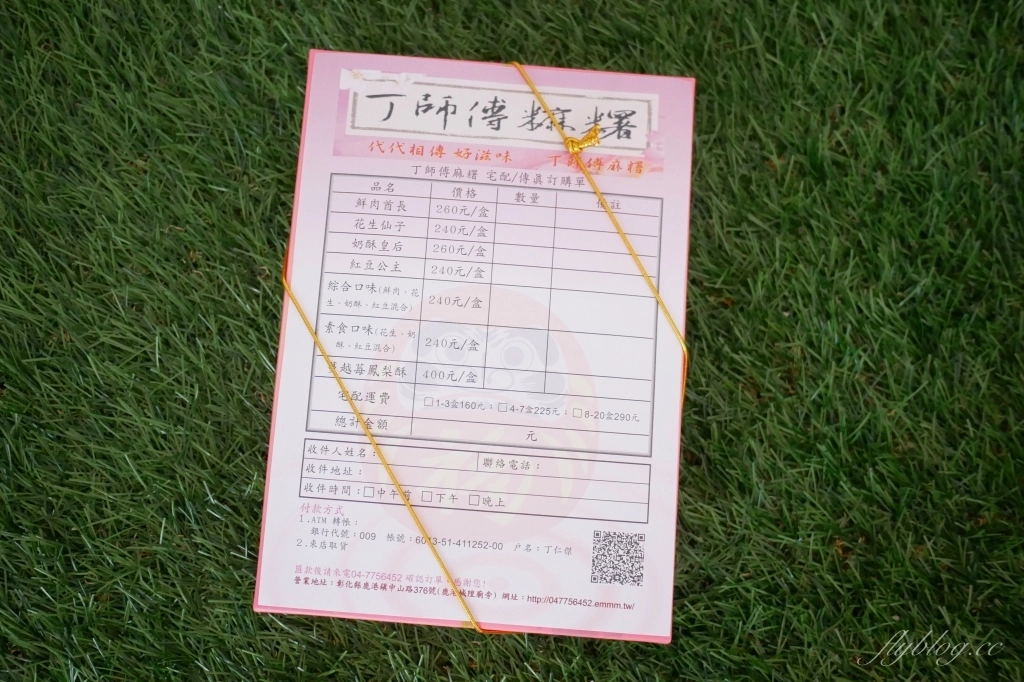 丁師傅糕糬
代代相傳 好滋味 丁師傅麻糬
丁師傅麻糬 宅配/傳真訂購單
品名 價格 數量 備註
鮮肉酋長 260元/盒
花生仙子 240元/盒
奶酥皇后 260元/盒
紅豆公主 240元/盒
綜合口味(鮮肉、花
生、奶酥、紅豆混合) 240元/盒
素食口味(花生、奶
酥、紅豆混合) 240元/盒
越莓鳳梨酥 400元/盒
宅配運費 □1-3盒160元；□4-7盒225元；□8-20盒290元
總計金額 元
收件人姓名： 聯絡電話：
收件地址：
收件時間：□中午前 □下午 □晚上
付款方式
1.ATM 轉帳：
銀行代號：009 帳號：6013-51-411252-00 戶名：丁仁傑
2.來店取貨
匯款後請來電04-7756452 確認訂單，感謝您!
營業地址：彰化縣鹿港鎮中山路376號(鹿港城隍廟旁) 網址：http://047756452.emmm.tw/
flyblog.cc